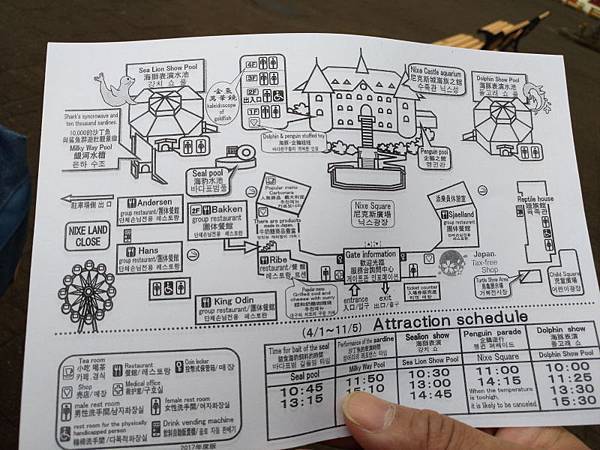 Sea Lion Show Pool
海獅表演水池
강치 쇼 풀
Shark's syncrowave and
ten thousand sardines
10,000的沙丁魚
Milky Way Pool
銀河水槽
은하 수조
金魚
萬華鏡
kaleidoscope
of
goldfish
4F
3F
2F
出入口
1F
Nixe Castle aquarium
尼克斯城海族之館
수족관 닉스성
Dolphin Show Pool
海豚表演水池
돌고래 쇼 풀
Dolphin & penguin stuffed toy
海豚·企鵝娃娃
Penguin pool
企鵝之館
펭귄관
Seal pool
海豹水池
바다표범풀
駐車場側 出口
NIXE LAND
CLOSE
Andersen
group restaurant/團体餐館
단체손님전용 레스토랑
2F
Bakken
group restaurant/
團体餐館
단체손님전용 레스토랑
Popular menu
Carbonara
There are products
made in Japan.
Hans
group restaurant/
團体餐館
단체손님전용 레스토랑
Ribe
restaurant/餐館
King Odin
group restaurant/團体餐館
단체손님전용 레스토랑
Nixe Square
尼克斯廣場
닉스광장
Gate information
歡迎光臨
服務台詢問中心
entrance
入口/입구
exit
出口/출구
ticket counter
Sjaelland
group restaurant/
團体餐館
Japan.
Tax-free
Shop
Reptile house
Turtle Show Area
Child Square
(4/1~11/5) Attraction schedule
Time for bait of the seal
Seal pool
10:45
13:15
Performance of the sardine
Milky Way Pool
11:50
15:10
Sealion show
海獅表演
강치 쇼
Sea Lion Show Pool
10:30
13:00
14:45
Penguin parade
企鵝遊行
펭귄 퍼레이드
Nixe Square
11:00
14:15
When the temperature
is toohigh,
it is likely to be canceled.
Dolphin show
海豚表演
돌고래 쇼
Dolphin Show Pool
10:00
11:25
13:30
15:30
Tea room
小吃 喝茶
카페.경식
Restaurant
餐館/레스토랑
Coin locker
Shop
売店/매점
Medical office
救护室/구호실
male rest room
男性洗手間/남자화장실
female rest room
女性洗手間/여자화장실
rest room for the physically
handicapped person
輪椅洗手間/다목적화장실
Drink vending machine
2017年度版